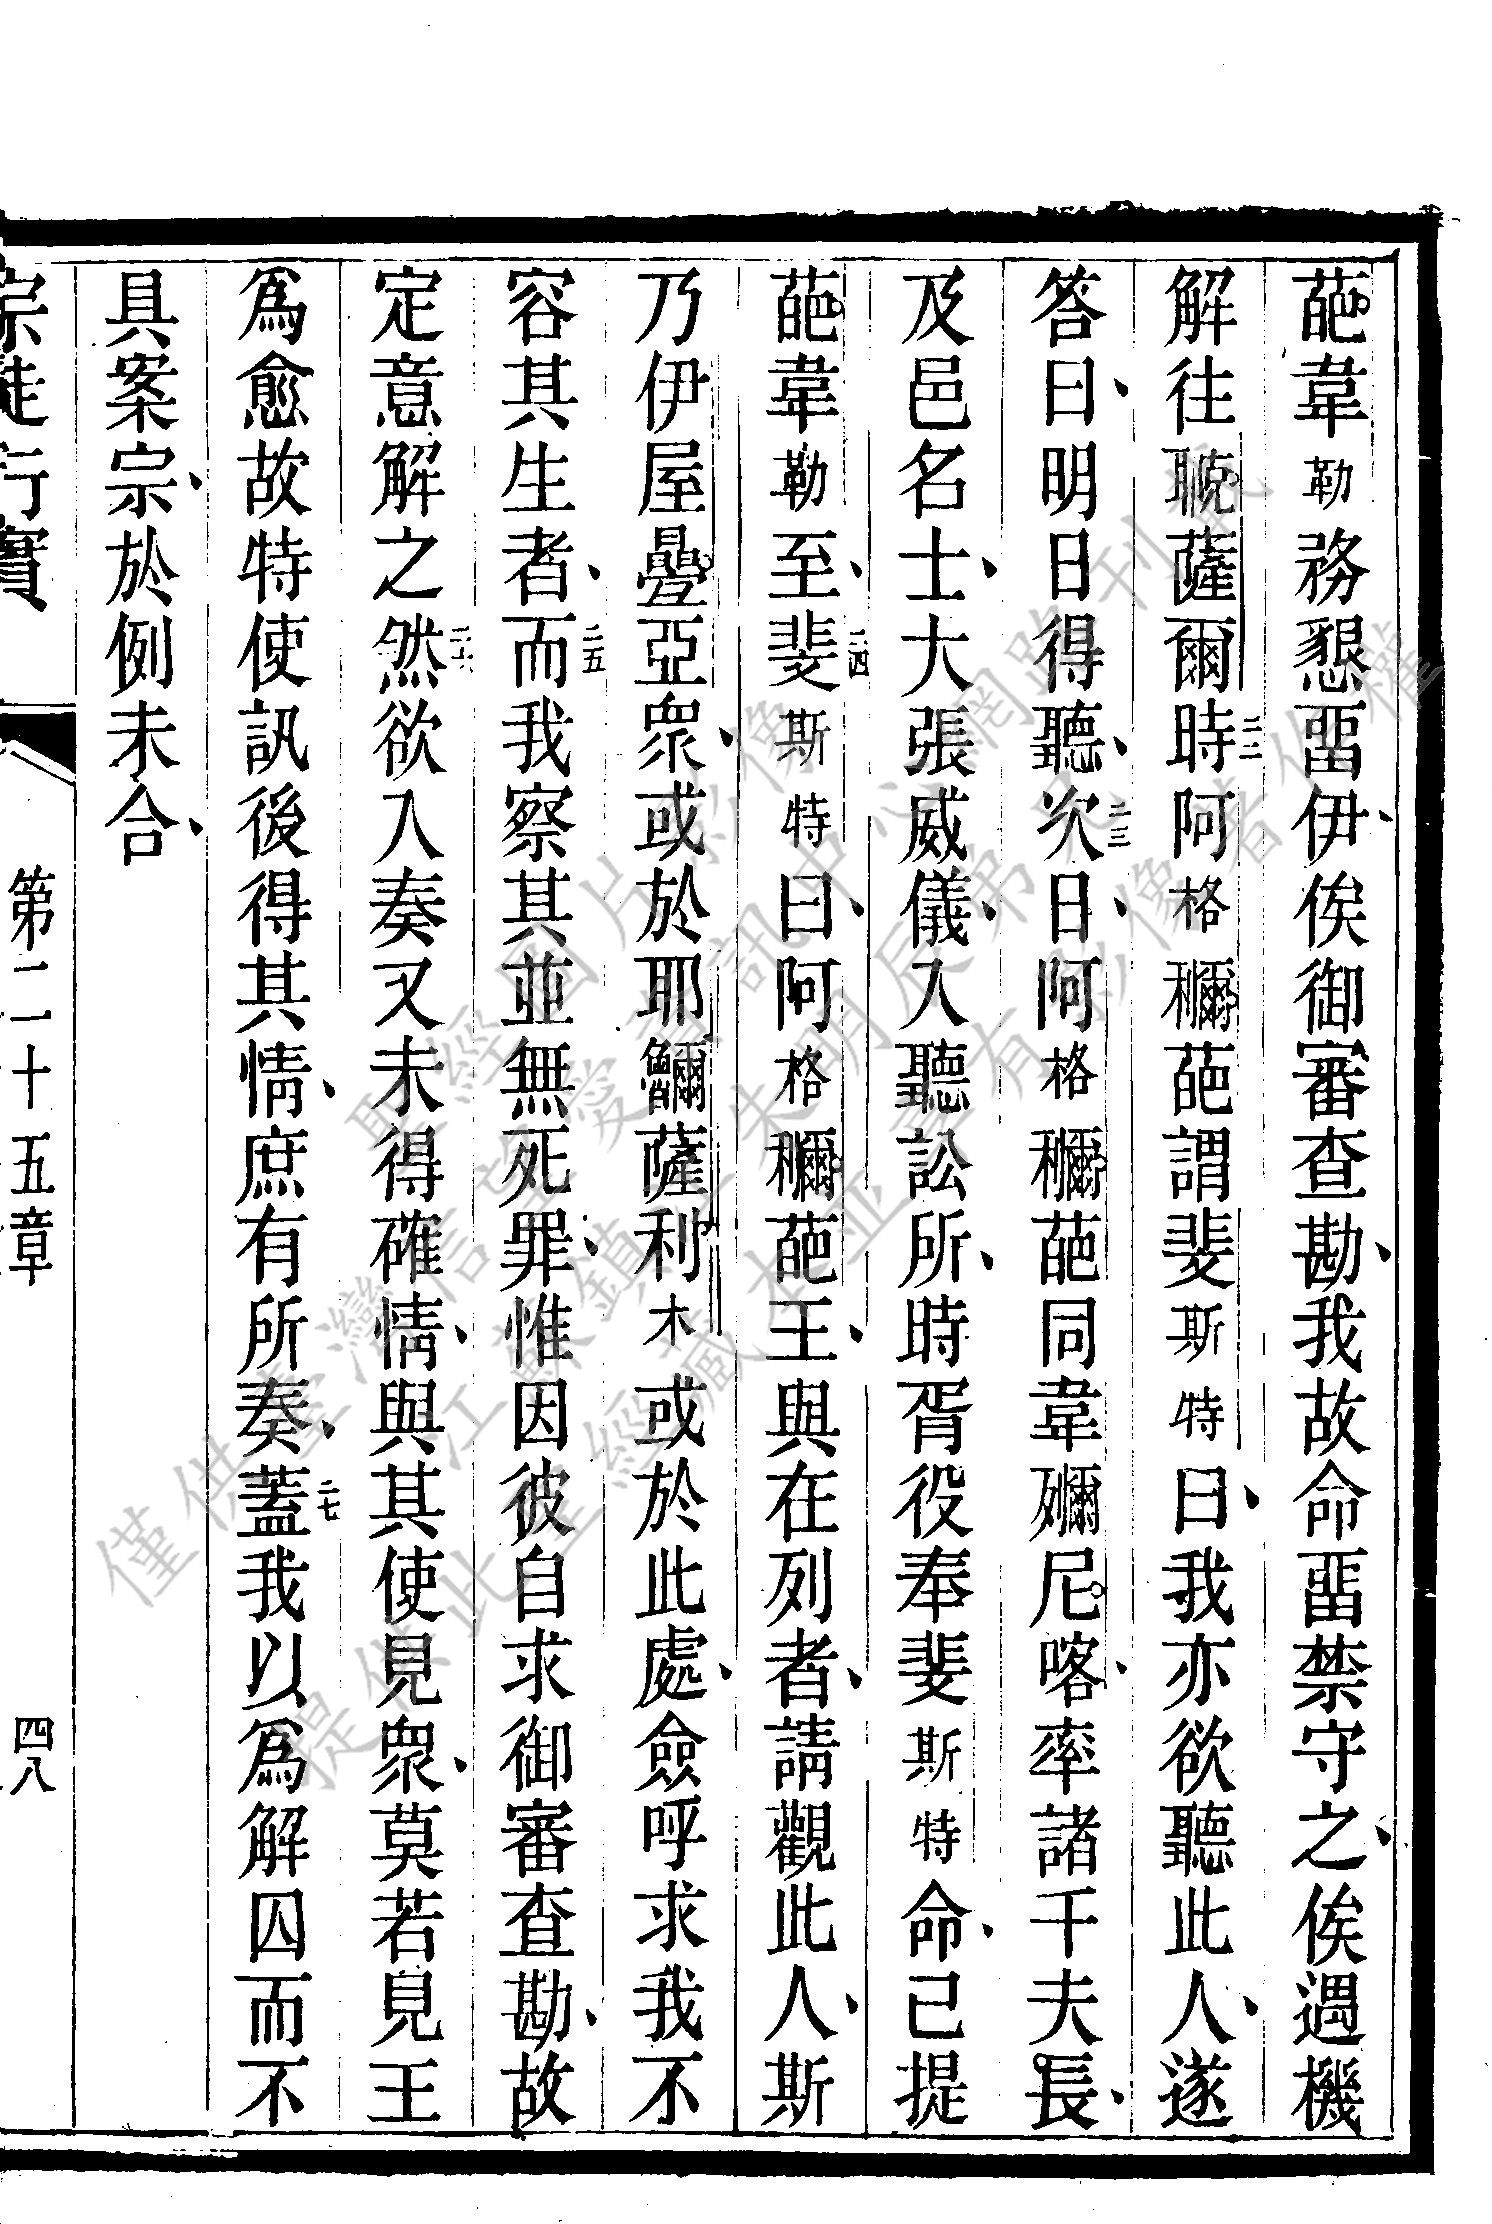 葩韋勒務懇畱伊俟御審查勘我故命畱禁守之俟遇機
解往聭薩爾二二時阿格𥣡葩謂斐斯特曰我亦欲聽此人遂
答曰明日得聽二三次日阿格𥣡葩同韋㺇尼喀率諸千夫長
及邑名士大張威儀入聽訟所時胥役奉斐斯特命已提
葩韋勒至二四斐斯特曰阿格𥣡葩王與在列者請觀此人斯
乃伊屋疊亞衆或於耶薩利木或於此處僉呼求我不
容其生者二五而我察其並無死罪惟因彼自求御審查勘故
定意解之二六然欲入奏又未得確情與其使見衆莫若見王
爲愈故特使訊後得其情庶有所奏二七蓋我以爲解囚而不
具案宗於例未合
宗徒行實 第二十五章 四八
僅供臺灣信望愛資訊中心網路刊載